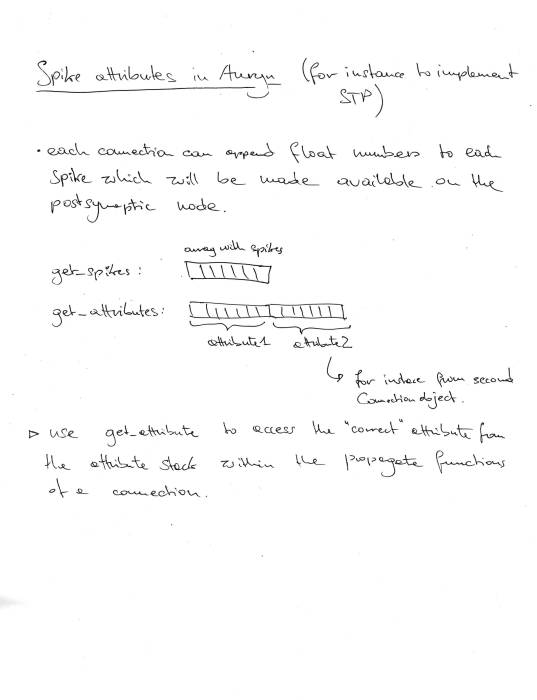 Spike attributes in Auryn (for instance to implement
STP)
• each connection can append float numbers to each
spike which will be made available on the
postsynaptic node.
array with spikes
get_spikes :
get_attributes :
attribute1 attribute2
for instance from second
Connection object.
▷ use get_attribute to access the "correct" attribute from
the attribute stack within the propagate functions
of a connection.